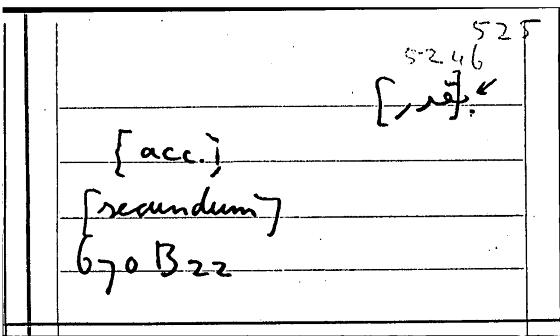 525
52.46
[acc.]
[secundum]
670 B22